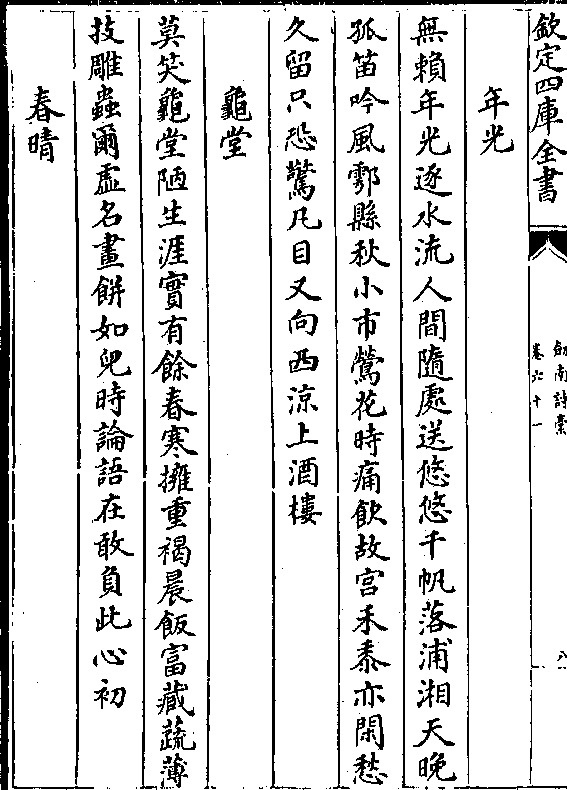 欽定四庫全書
劍南詩稾
卷六十一
八
年光
無賴年光逐水流人間隨處送悠悠千帆落浦湘天晚
孤笛吟風鄠縣秋小市鶯花時痛飲故宮禾黍亦閑愁
久留只恐驚凡目又向西涼上酒樓
龜堂
莫笑龜堂陋生涯實有餘春寒擁重褐晨飯富藏蔬薄
技雕蟲爾虛名畫餅如兒時論語在敢負此心初
春晴